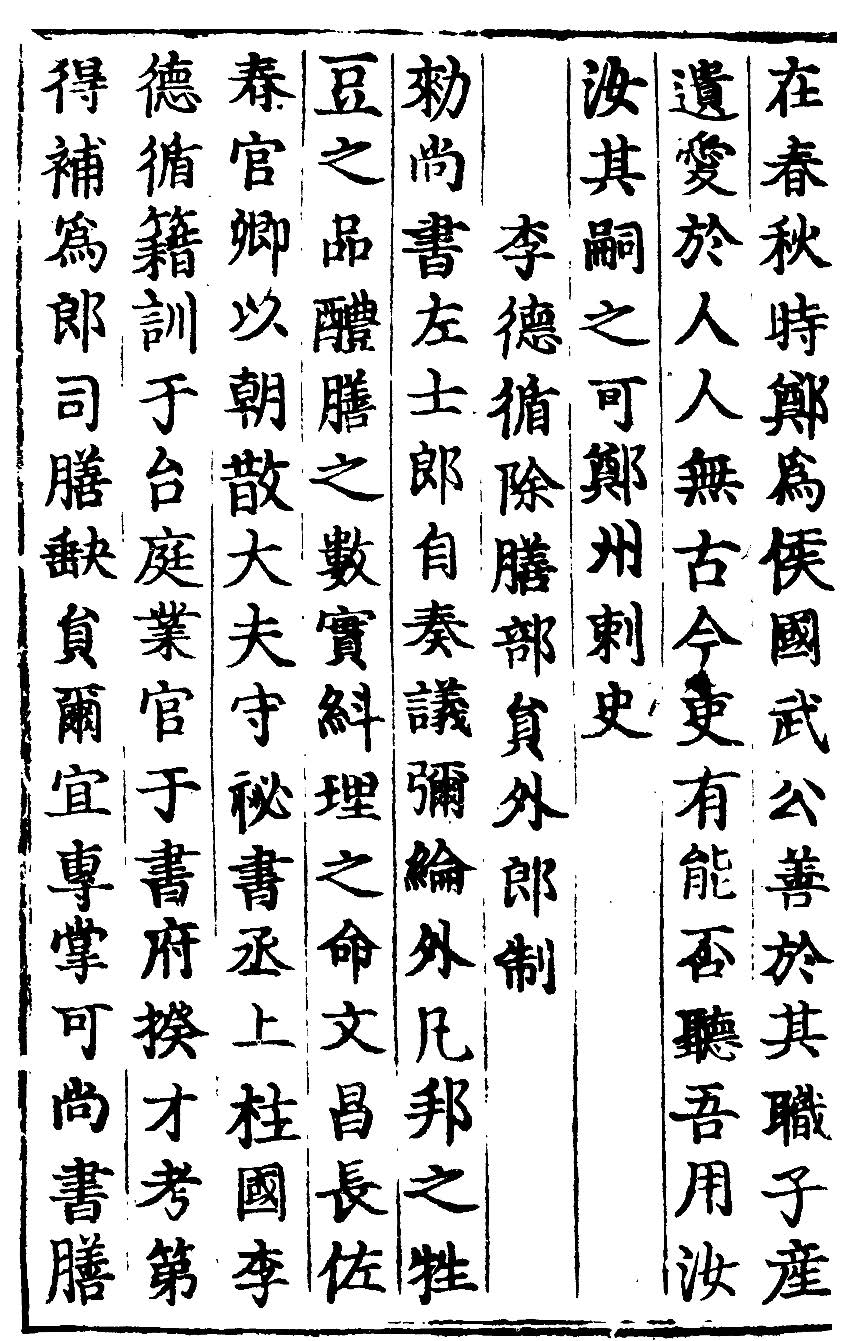 在春秋時鄭爲侯國武公善於其職子産
遺愛於人人無古今吏有能否聽吾用汝
汝其嗣之可鄭州刺史
李德循除膳部貟外郎制
勑尚書左士郎自奏議彌綸外凡邦之牲
豆之品醴膳之數實紏理之命文昌長佐
春官卿以朝散大夫守祕書丞上柱國李
德循籍訓于台庭業官于書府揆才考第
得補爲郎司膳缺貟爾宜專掌可尚書膳